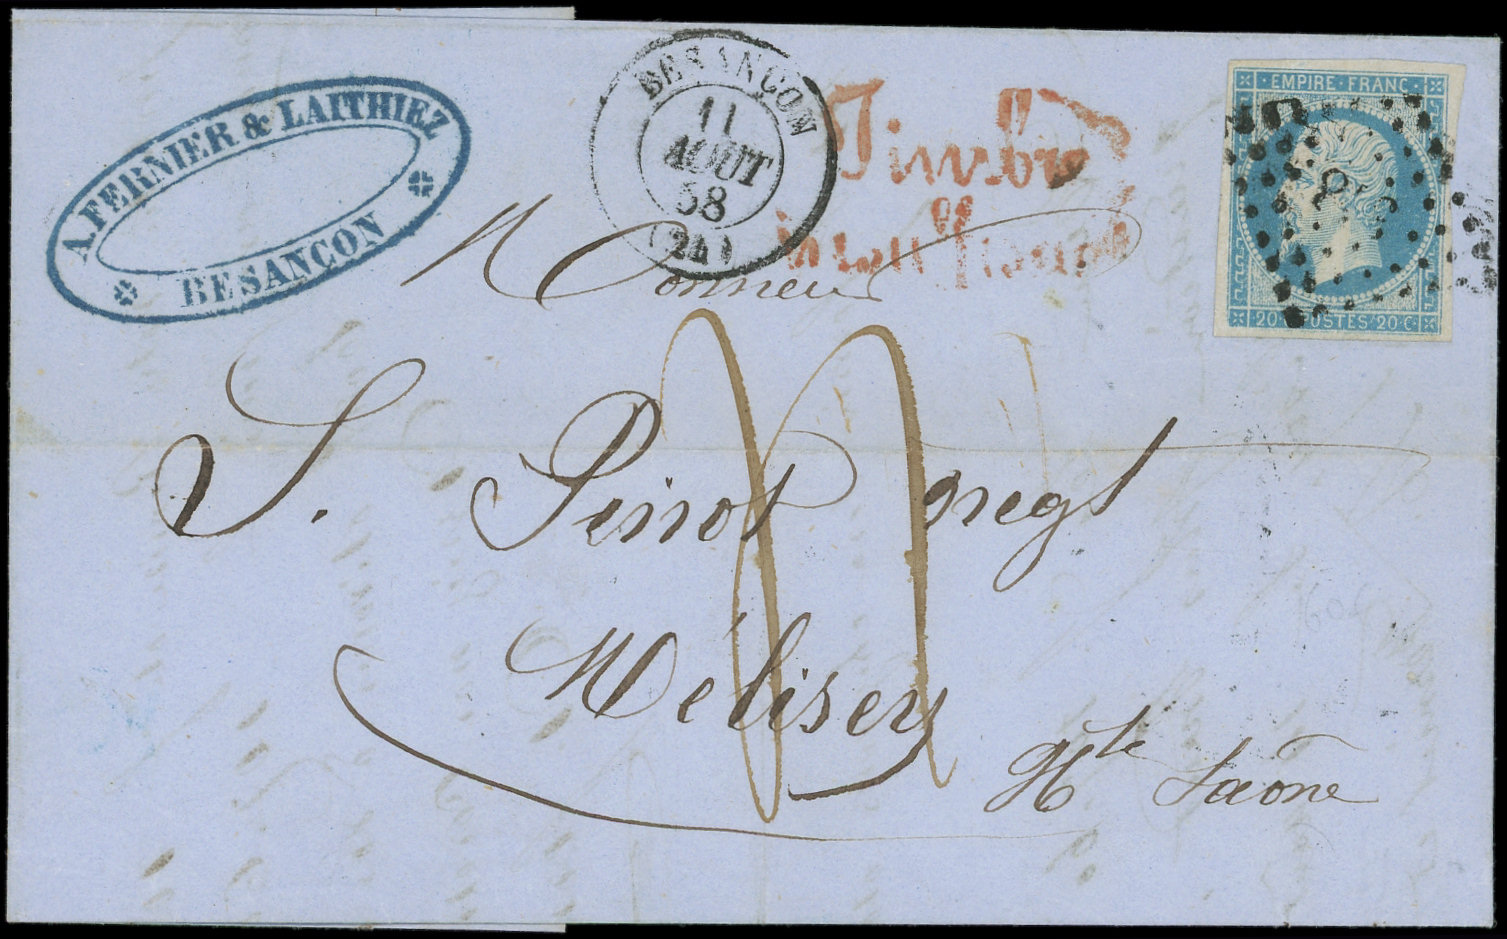 A. FERNIER & LAITHIEZ
BESANCON
BESANÇON
11
AOUT
58
(24)
Timbre
insuffisant
EMPIRE FRANC
20 POSTES 20 C
Monsieur
S. Pinot negt
Mélisey
Hte Saône